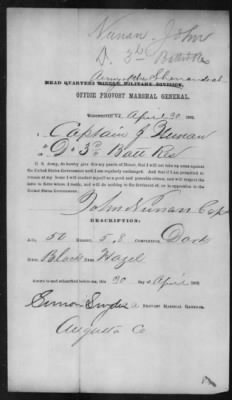 Nunan John
D. 3d Batt Res
Army of the Shenandoah
HEAD QUARTERS MIDDLE MILITARY DIVISION,
OFFICE PROVOST MARSHAL GENERAL.
April 30 1865.
I Captain J Nunan
of D. 3rd Batt Res
C. S. Army, do hereby give this my parole of Honor, that I will not take up arms against
the United States Government until I am regularly exchanged. And that if I am permitted to
remain at my home I will conduct myself as a good and peaceable citizen, and will respect the
laws in force where I reside, and will do nothing to the detriment of, or in opposition to the
United States Government.
John Nunan Capt
DESCRIPTION:
AGE, 50 HEIGHT, 5.8 COMPLEXION, Dark
Black Hazel
Sworn to and subscribed before me, this 30 day of April 1865
PROVOST MARSHAL GENERAL.
Augusta Co